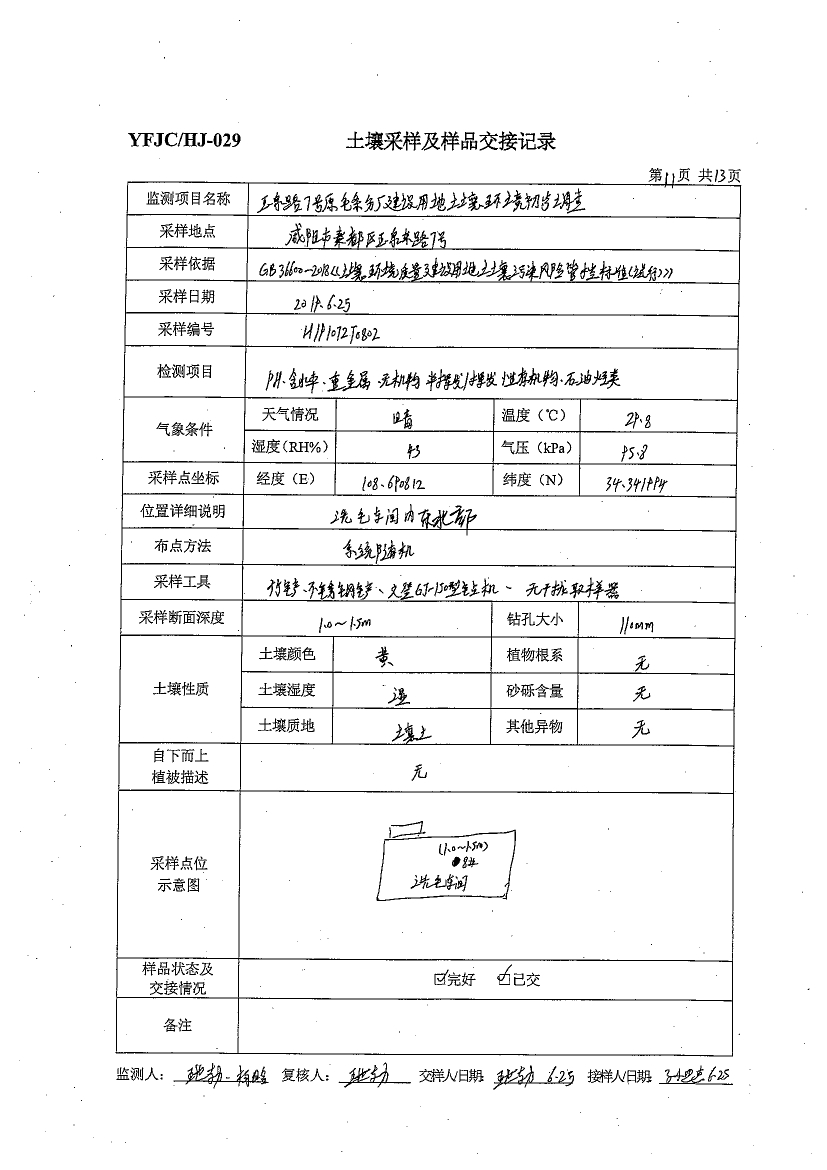 YFJC/HJ-029 土壤采样及样品交接记录
第11页 共13页
监测项目名称 路7号原毛条分厂建设用地土壤环境初步调查
采样地点 咸阳市秦都区 路7号
采样依据 GB36600-2018《土壤环境质量建设用地土壤污染风险管控标准(试行)》
采样日期 2019.6.25
采样编号
检测项目 PH、含水率、重金属、无机物 半挥发/挥发性有机物、石油烃类
气象条件 天气情况 晴 温度(℃) 29.8
湿度(RH%) 43 气压(kPa) 95.8
采样点坐标 经度(E) 108.690812 纬度(N) 34.341994
位置详细说明 洗毛车间内东北部
布点方法 系统随机
采样工具 竹铲、不锈钢铲、 GJ-150型钻机、无干扰取样器
采样断面深度 1.0~1.5m 钻孔大小 110mm
土壤性质 土壤颜色 黄 植物根系 无
土壤湿度 湿 砂砾含量 无
土壤质地 壤土 其他异物 无
自下而上
植被描述 无
采样点位
示意图
(1.0~1.5m)
8#
洗毛车间
样品状态及
交接情况 ☑完好 ☑已交
备注
监测人: 复核人: 交样人/日期: 6.25 接样人/日期: 6.25